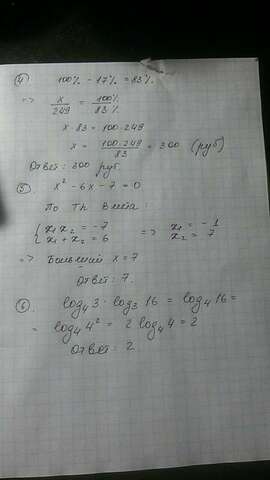 ④ 100% - 17% = 83%.
=> x/249 = 100%/83%
x · 83 = 100 · 249
x = 100·249/83 = 300 (руб)
Ответ: 300 руб.
⑤ x² - 6x - 7 = 0
По Тн. Виета:
{x₁x₂ = -7 => x₁ = -1
{x₁ + x₂ = 6 x₂ = 7
=> Больший x = 7
Ответ: 7.
⑥ log₄3 · log₃16 = log₄16 =
= log₄4² = 2 log₄4 = 2
Ответ: 2